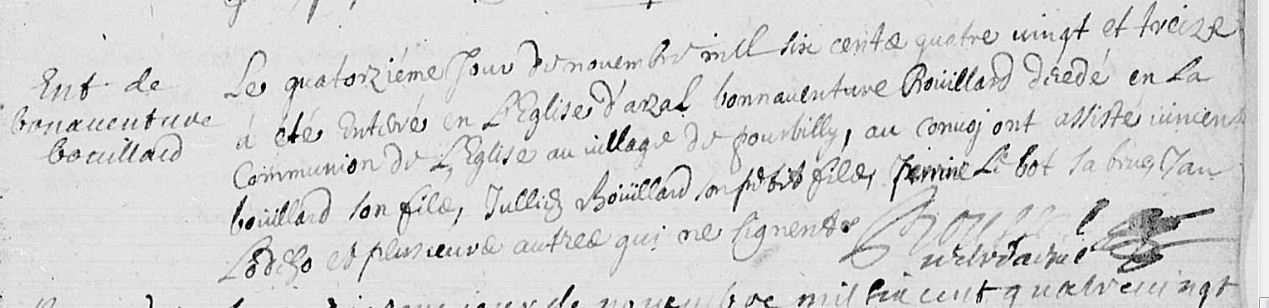 Ent de
bonauenture
bouillard
Le quatorziéme Jour de novembre mil six cents quatre vingt et treize
á été Enterré en L'Eglise d'arzal bonnauenture Roüillard décdé en La
Communion de L'Eglise au village de pourbilly, au convoj ont assisté vincent
boüillard son fils, Jullien Boüillard son petit fils, perrine Le bot sa brus, Jan
et plusieurs autres qui ne signent
jour de nouembre mil six cent quatre vingt